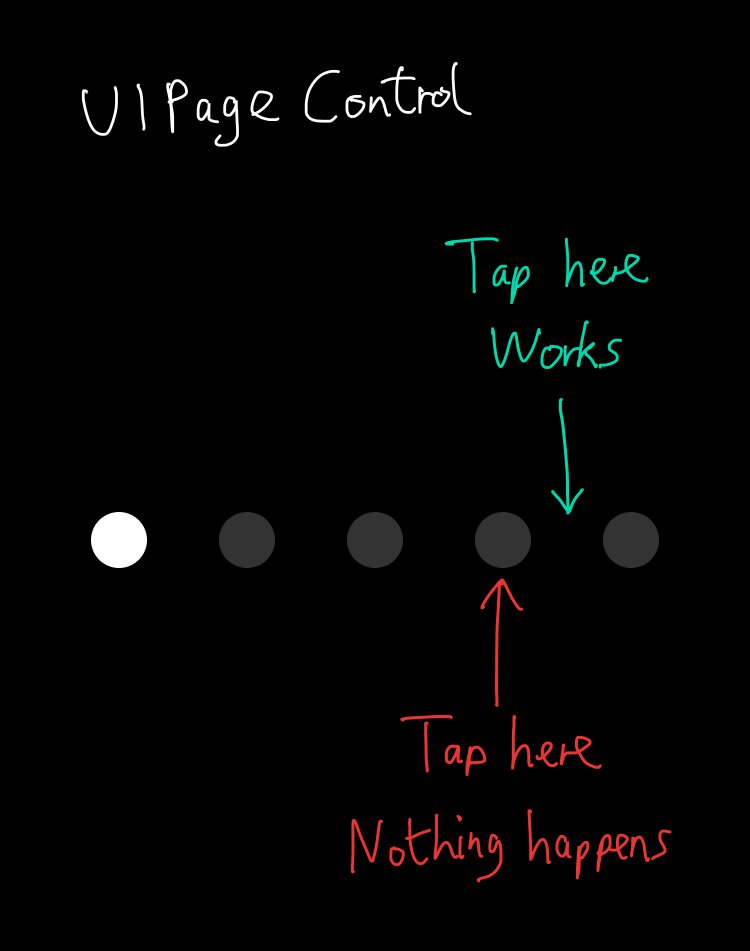 UIPage Control
Tap here
Works
Tap here
Nothing happens